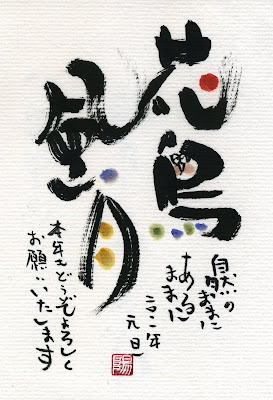 花鳥
風月
自然の
ままに
あるが
ままに
二〇一一年
元旦
本年もどうぞよろしく
お願いいたします